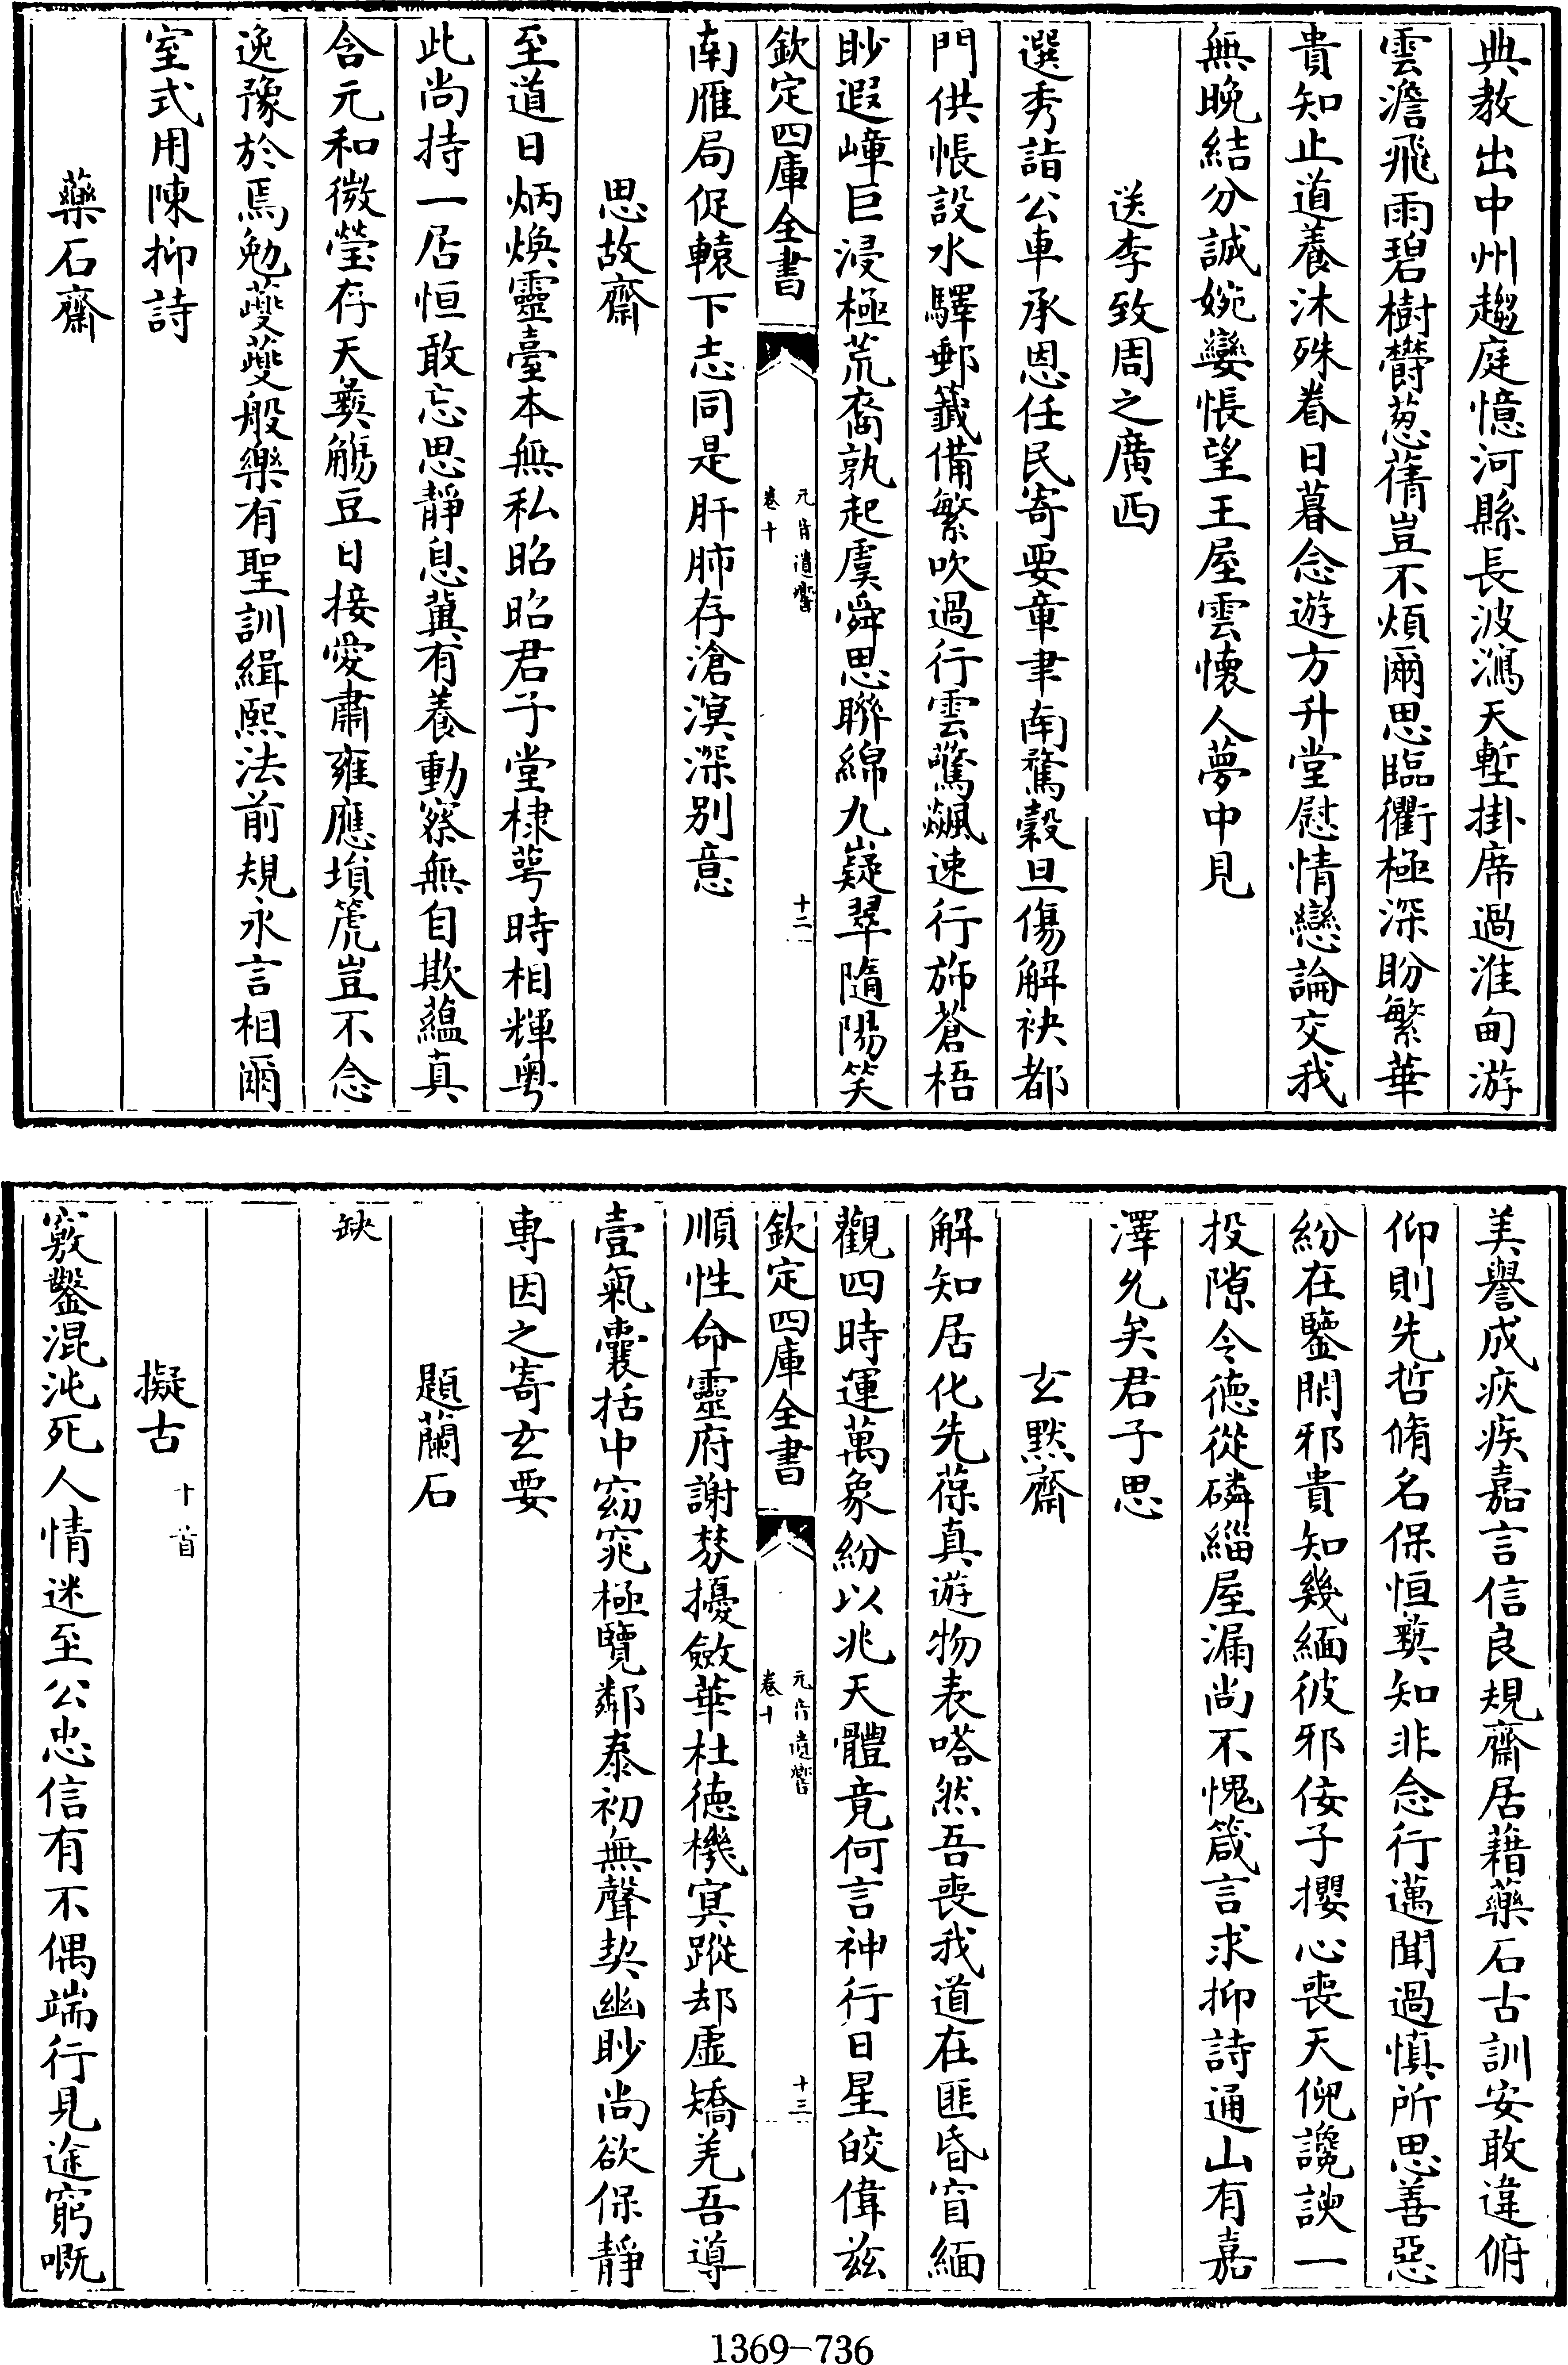 典教出中州趨庭憶河縣長波瀉天塹掛席過淮甸游
雲澹飛雨碧樹欝葱蒨豈不煩爾思臨衢極深盼繁華
貴知止道養沐殊眷日暮念遊方升堂慰情戀論交我
無晚結分誠婉孌悵望王屋雲懷人夢中見
送李致周之廣西
選秀詣公車承恩任民寄要章聿南騖縠旦傷解袂都
門供悵設水驛郵籖備繁吹過行雲驚飇速行斾蒼梧
眇遐嶂巨浸極荒裔孰起虞舜思聯綿九嶷翠隨陽笑
欽定四庫全書
元音遺響
卷十
十二
南雁局促轅下志同是肝肺存滄溟深别意
思故齋
至道日炳煥靈臺本無私昭昭君子堂棣萼時相輝粤
此尚持一㞐恒敢忘思靜息冀有養動察無自欺蘊真
含元和微瑩存天彞觴豆日接愛肅雍應塤箎豈不念
逸豫於焉勉蘷蘷般樂有聖訓緝熙法前規永言相爾
室式用陳抑詩
藥石齋
美譽成疢疾嘉言信良規齋居藉藥石古訓安敢違俯
仰則先哲脩名保恒彞知非念行邁聞過慎所思善惡
紛在鑒閑邪貴知幾緬彼邪佞子攖心喪天倪讒諛一
投隙令徳從磷緇屋漏尚不愧箴言求抑詩通山有嘉
澤允矣君子思
玄默齋
解知居化先葆真遊物表嗒然吾喪我道在匪昏窅緬
觀四時運萬象紛以兆天體竟何言神行日星皎偉兹
欽定四庫全書
元音遺響
卷十
十三
順性命靈府謝棼擾斂華杜徳機冥蹤却虛矯羌吾導
壹氣囊括中窈窕極覽鄰泰初無聲契幽眇尚欲保靜
專因之寄玄要
題蘭石
缺
擬古 十首
竅鑿混沌死人情迷至公忠信有不偶端行見途窮嘅
1369-736